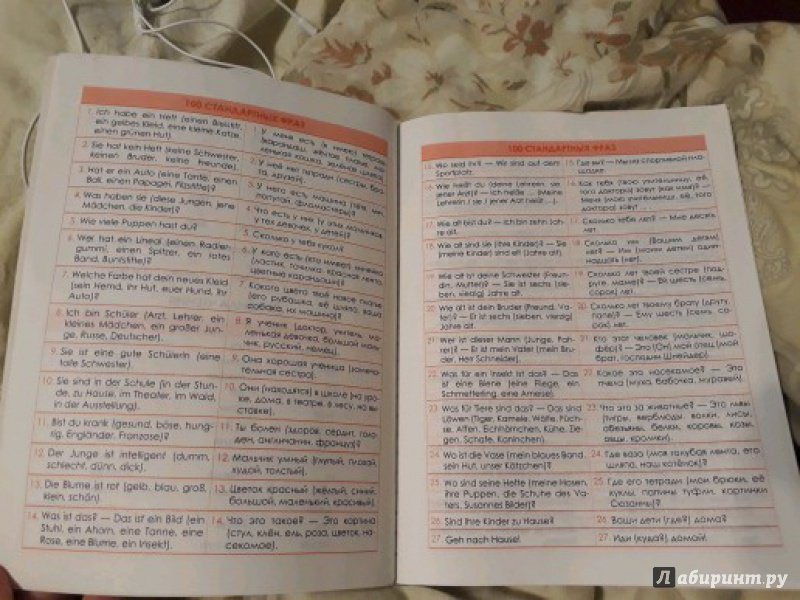 100 СТАНДАРТНЫХ ФРАЗ
1. Ich habe ein Heft (einen Bleistift,
ein gelbes Kleid, eine kleine Katze,
einen grünen Hut).
1. У меня есть (я имею) тетрадь
(карандаш, жёлтое платье,
ленькая кошка, зелёная шляпа).
2. Sie hat kein Heft (keine Schwester,
keinen Bruder, keine Freunde).
2. У неё нет тетради (сестры, бра-
та, друзей).
3. Hat er ein Auto (eine Tante, einen
Ball, einen Papagei, Filzstifte)?
3. У него есть машина (тётя, мяч,
попугай, фломастеры)?
4. Was haben sie (diese Jungen, jene
Mädchen, die Kinder)?
4. Что есть у них (у этих мальчиков,
у тех девочек, у детей)?
5. Wie viele Puppen hast du?
5. Сколько у тебя кукол?
6. Wer hat ein Lineal (einen Radier-
gummi, einen Spitzer, ein rotes
Band, Buntstifte)?
6. У кого есть (кто имеет) линейка
(ластик, точилка, красная лента,
цветные карандаши)?
7. Welche Farbe hat dein neues Kleid
(sein Hemd, ihr Hut, euer Hund, ihr
Auto)?
7. Какого цвета твоё новое платье
(его рубашка, её шляпа, ваша
собака, их машина)?
8. Ich bin Schüler (Arzt, Lehrer, ein
kleines Mädchen, ein großer Jun-
ge, Russe, Deutscher).
8. Я ученик (доктор, учитель, ма-
ленькая девочка, большой маль-
чик, русский, немец).
9. Sie ist eine gute Schülerin (eine
tolle Schwester).
9. Она хорошая ученица (замеча-
тельная сестра).
10. Sie sind in der Schule (in der Stun-
de, zu Hause, im Theater, im Wald,
in der Ausstellung).
10. Они (находятся) в школе (на уро-
ке, дома, в театре, в лесу, на вы-
ставке).
11. Bist du krank (gesund, böse, hung-
rig, Engländer, Franzose)?
11. Ты болен (здоров, сердит, голо-
ден, англичанин, француз)?
12. Der Junge ist intelligent (dumm,
schlecht, dünn, dick).
12. Мальчик умный (глупый, плохой,
худой, толстый).
13. Die Blume ist rot (gelb, blau, groß,
klein, schön).
13. Цветок красный (жёлтый, синий,
большой, маленький, красивый).
14. Was ist das? — Das ist ein Bild (ein
Stuhl, ein Ahorn, eine Tanne, eine
Rose, eine Blume, ein Insekt).
14. Что это такое? — Это картина
(стул, клён, ель, роза, цветок, на-
секомое).
100 СТАНДАРТНЫХ ФРАЗ
15. Wo seid ihr? — Wir sind auf dem
Sportplatz.
15. Где вы? — Мы на спортивной пло-
щадке.
16. Wie heißt du (deine Lehrerin, sie,
jener Arzt)? — Ich heiße ... (Meine
Lehrerin / sie / jener Arzt heißt ...).
16. Как тебя (твою учительницу, её,
того доктора) зовут (как имя)? —
Меня (мою учительницу, её, того
доктора) зовут ...
17. Wie alt bist du? — Ich bin zehn Jah-
re alt.
17. Сколько тебе лет? — Мне десять
лет.
18. Wie alt sind sie (Ihre Kinder)? — Sie
(meine Kinder) sind elf (Jahre alt).
18. Сколько им (Вашим детям)
лет? — Им (моим детям) один-
надцать (лет).
19. Wie alt ist deine Schwester (Freun-
din, Mutter)? — Sie ist sechs (sie-
ben, vierzig) Jahre alt.
19. Сколько лет твоей сестре (под-
руге, маме)? — Ей шесть (семь,
сорок) лет.
20. Wie alt ist dein Bruder (Freund, Va-
ter)? — Er ist sechs (sieben, vierzig)
Jahre alt.
20. Сколько лет твоему брату (другу,
папе)? — Ему шесть (семь, со-
рок) лет.
21. Wer ist dieser Mann (Junge, Fah-
rer)? — Er ist mein Vater (mein Bru-
der, Herr Schneider).
21. Кто этот человек (мальчик, шо-
фёр)? — Это (Он) мой отец (мой
брат, господин Шнайдер).
22. Was für ein Insekt ist das? — Das
ist eine Biene (eine Fliege, ein
Schmetterling, eine Ameise).
22. Какое это насекомое? — Это
пчела (муха, бабочка, муравей).
23. Was für Tiere sind das? — Das sind
Löwen (Tiger, Kamele, Wölfe, Füch-
se, Affen, Eichhörnchen, Kühe, Zie-
gen, Schafe, Kaninchen).
23. Что это за животные? — Это львы
(тигры, верблюды, волки, лисы,
обезьяны, белки, коровы, козы,
овцы, кролики).
24. Wo ist die Vase (mein blaues Band,
sein Hut, unser Kätzchen)?
24. Где ваза (моя голубая лента, его
шляпа, наш котёнок)?
25. Wo sind seine Hefte (meine Hosen,
ihre Puppen, die Schuhe des Va-
ters, Susannes Bilder)?
25. Где его тетради (мои брюки, её
куклы, папины туфли, картинки
Сюзанны)?
26. Sind Ihre Kinder zu Hause?
26. Ваши дети (где?) дома?
27. Geh nach Hause!
27. Иди (куда?) домой!
Лабиринт.ру